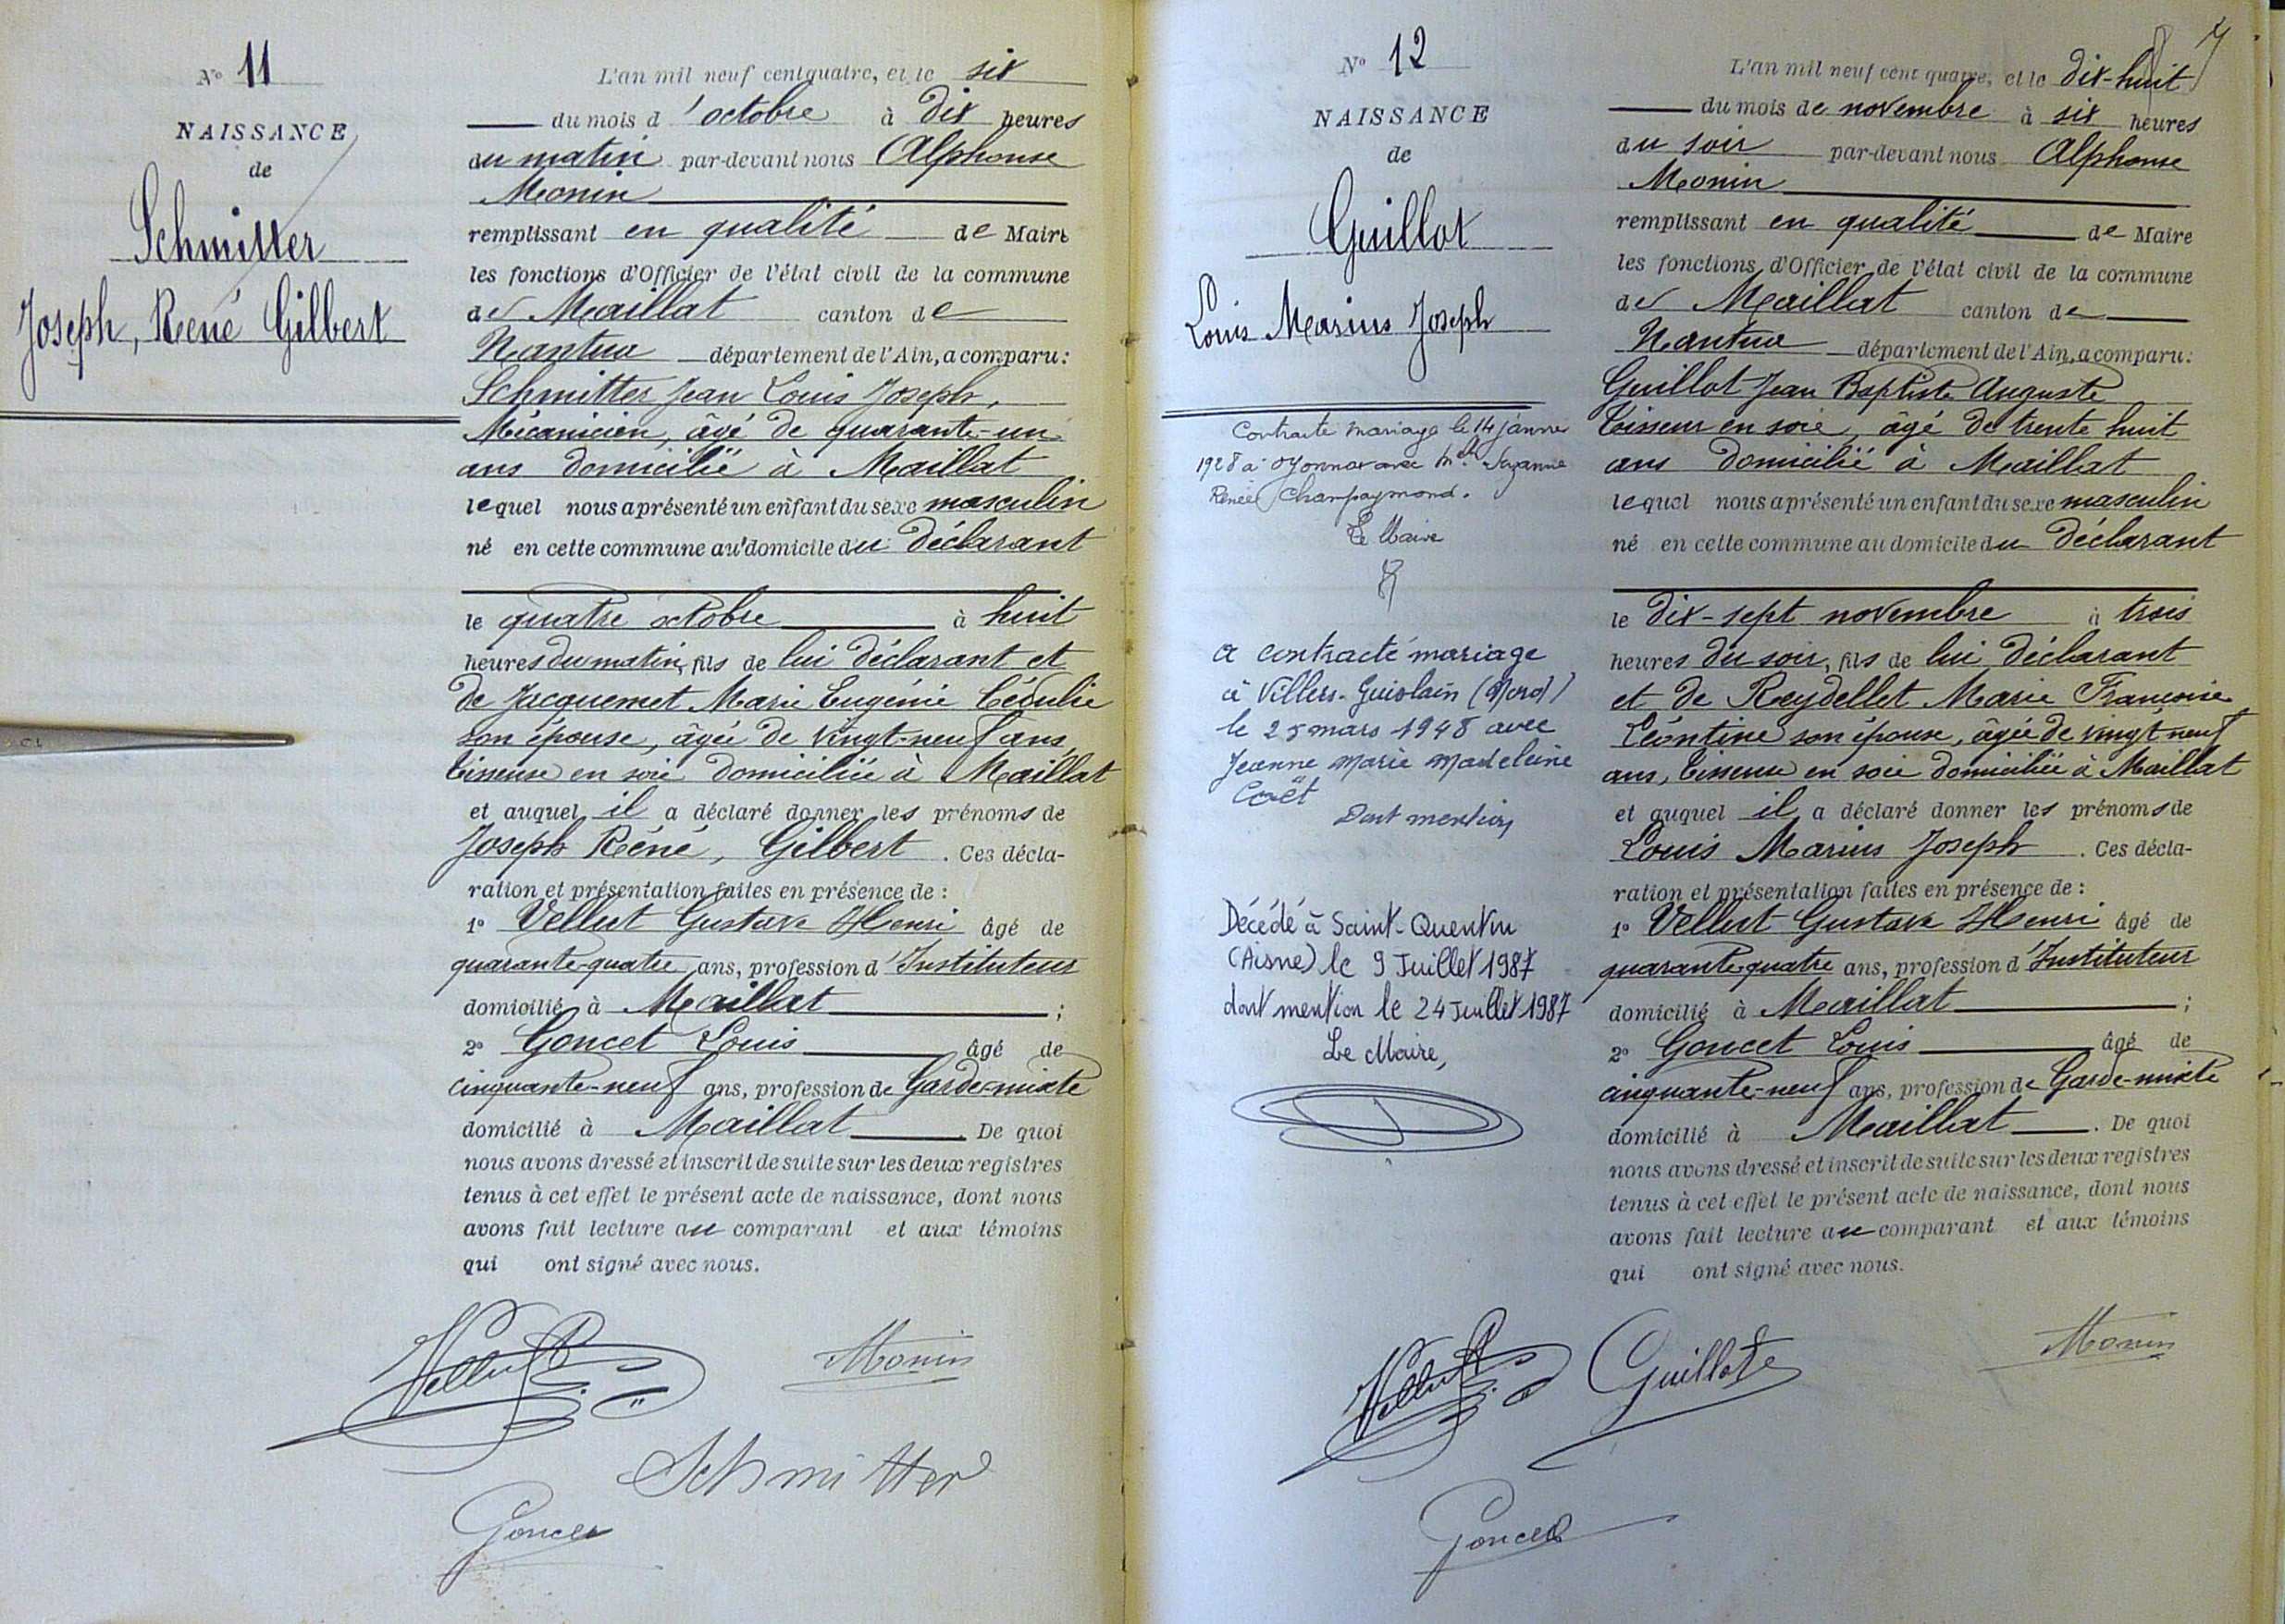 N° 11
NAISSANCE
de
Schmitter
Joseph, René Gilbert
L'an mil neuf cent quatre, et le six
du mois d'octobre à dix heures
du matin par-devant nous Alphonse
Monin
remplissant en qualité de Maire
les fonctions d'Officier de l'état civil de la commune
de Maillat canton de
Nantua département de l'Ain, a comparu:
Schmitter Jean Louis Joseph,
Mécanicien, âgé de quarante-un
ans domicilié à Maillat
lequel nous a présenté un enfant du sexe masculin
né en cette commune au domicile du déclarant
le quatre octobre à huit
heures du matin, fils de lui déclarant et
de Jacquemet Marie Eugénie
son épouse, âgée de vingt-neuf ans,
tisseuse en soie domiciliée à Maillat
et auquel il a déclaré donner les prénoms de
Joseph Réné, Gilbert. Ces décla-
ration et présentation faites en présence de :
1° Vellut Gustave Henri âgé de
quarante-quatre ans, profession d'Instituteur
domicilié à Maillat ;
2° Goncet Louis âgé de
cinquante-neuf ans, profession de Garde-mixte
domicilié à Maillat. De quoi
nous avons dressé et inscrit de suite sur les deux registres
tenus à cet effet le présent acte de naissance, dont nous
avons fait lecture au comparant et aux témoins
qui ont signé avec nous.
Vellut
Monin
Schmitter
Goncet
N° 12
NAISSANCE
de
Guillot
Louis Marius Joseph
Contracte mariage le 14 janvier
1928 à Oyonnax avec Mlle Suzanne
Renée Champaymond.
Le Maire
a contracté mariage
à Villers-Guislain (Nord)
le 25 mars 1948 avec
Jeanne Marie Madeleine
Coët
Dont mention
Décédé à Saint-Quentin
(Aisne) le 9 Juillet 1987
dont mention le 24 Juillet 1987
Le Maire,
7
L'an mil neuf cent quatre, et le dix-huit
du mois de novembre à six heures
du soir par-devant nous Alphonse
Monin
remplissant en qualité de Maire
les fonctions d'Officier de l'état civil de la commune
de Maillat canton de
Nantua département de l'Ain, a comparu:
Guillot Jean Baptiste Auguste
Tisseur en soie, âgé de trente huit
ans domicilié à Maillat
lequel nous a présenté un enfant du sexe masculin
né en cette commune au domicile du déclarant
le dix-sept novembre à trois
heures du soir, fils de lui déclarant
et de Reydellet Marie Françoise
Léontine son épouse, âgée de vingt neuf
ans, tisseuse en soie domiciliée à Maillat
et auquel il a déclaré donner les prénoms de
Louis Marius Joseph. Ces décla-
ration et présentation faites en présence de :
1° Vellut Gustave Henri âgé de
quarante-quatre ans, profession d'Instituteur
domicilié à Maillat ;
2° Goncet Louis âgé de
cinquante-neuf ans, profession de Garde-mixte
domicilié à Maillat. De quoi
nous avons dressé et inscrit de suite sur les deux registres
tenus à cet effet le présent acte de naissance, dont nous
avons fait lecture au comparant et aux témoins
qui ont signé avec nous.
Vellut
Guillot
Monin
Goncet